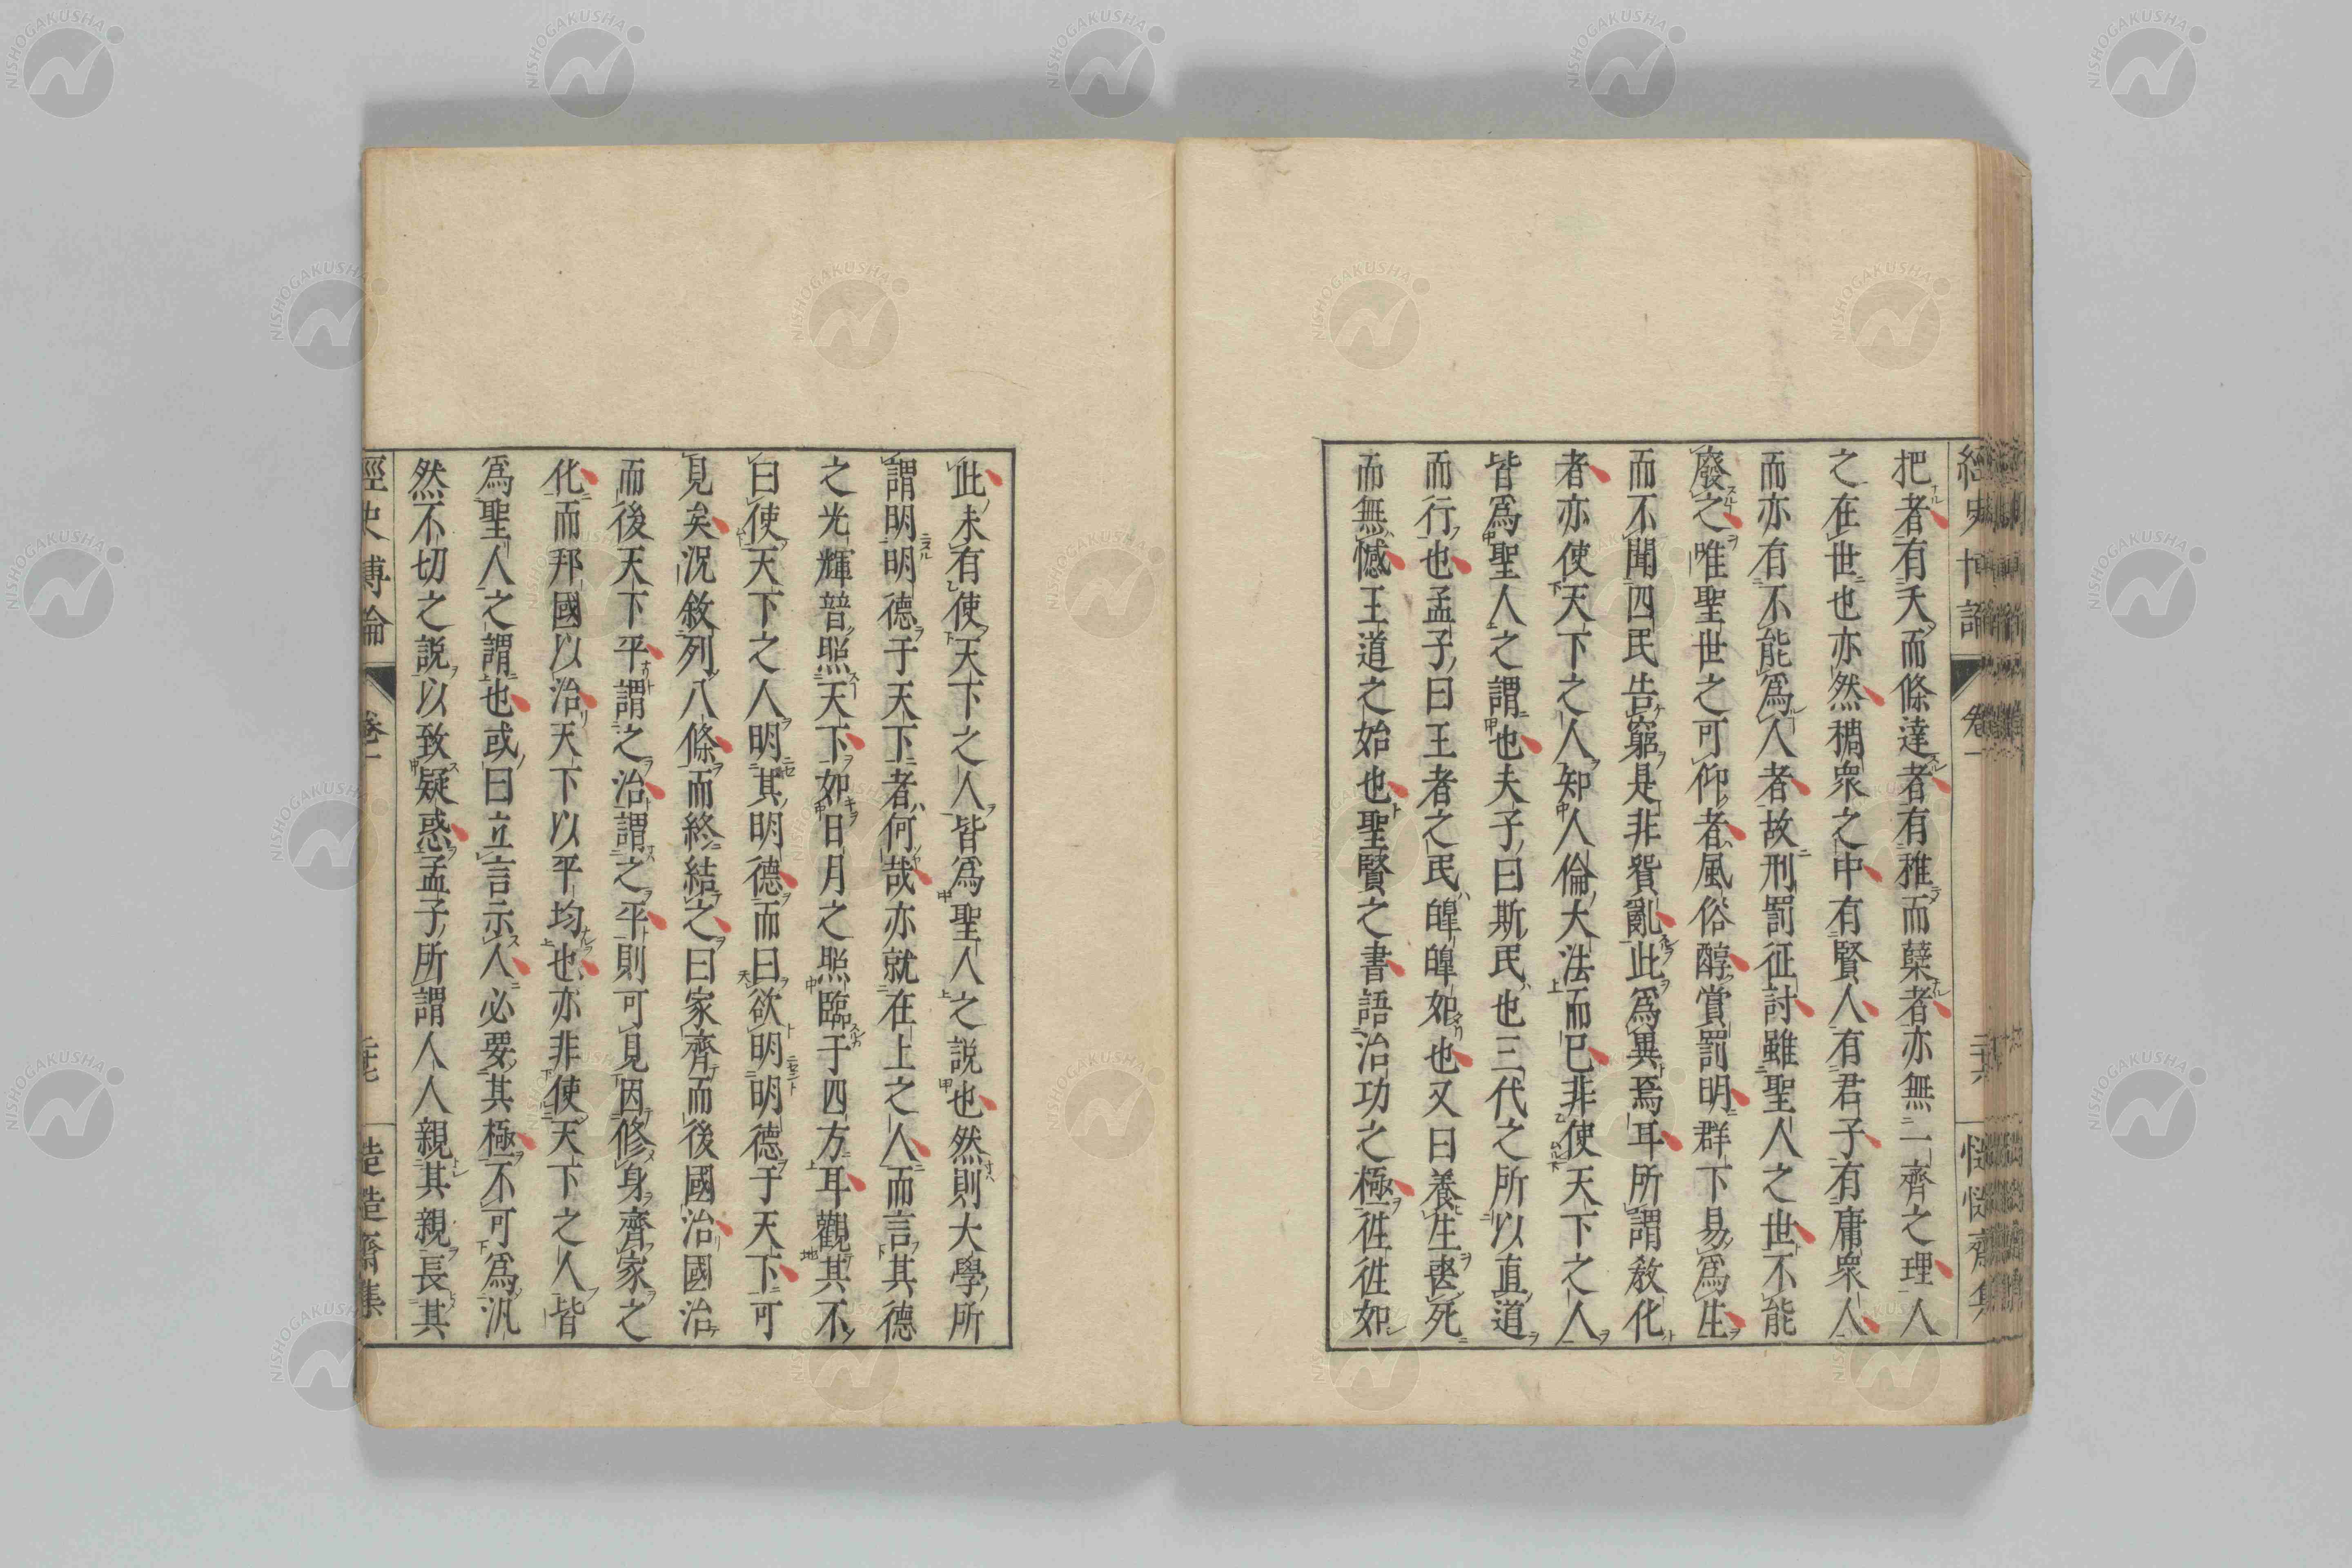 把者有夭而條達者有稚而蘖者亦無一齊之理人
之在世也亦然稠衆之中有賢人有君子有庸衆人
而亦有不能爲人者故刑罰征討雖聖人之世不能
廢之唯聖世之可仰者風俗醇賞罰明群下易爲生
而不聞四民告窮是非眢亂此爲異焉耳所謂敎化
者亦使天下之人知人倫大法而已非使天下之人
皆爲聖人之謂也夫子曰斯民也三代之所以直道
而行也孟子曰王者之民皥皥如也又曰養生喪死
而無憾王道之始也聖賢之書語治功之極徃徃如
此未有使天下之人皆爲聖人之説也然則大學所
謂明明德于天下者何哉亦就在上之人而言其德
之光輝普照天下如日月之照臨于四方耳觀其不
曰使天下之人明其明德而曰欲明明德于天下可
見矣況敘列八條而終結之曰家齊而後國治國治
而後天下平謂之治謂之平則可見因修身齊家之
化而邦國以治天下以平均也亦非使天下之人皆
爲聖人之謂也或曰立言示人必要其極不可爲汎
然不切之説以致疑惑孟子所謂人人親其親長其
經史博論 卷一